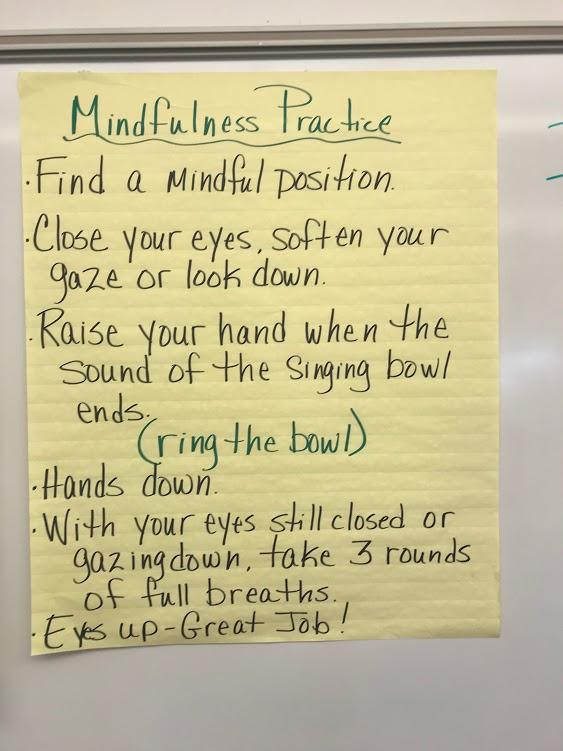 Mindfulness Practice
· Find a Mindful position.
· Close your eyes, soften your
gaze or look down.
· Raise your hand when the
sound of the singing bowl
ends.
(ring the bowl)
· Hands down.
· With your eyes still closed or
gazing down, take 3 rounds
of full breaths.
· Eyes up - Great Job!